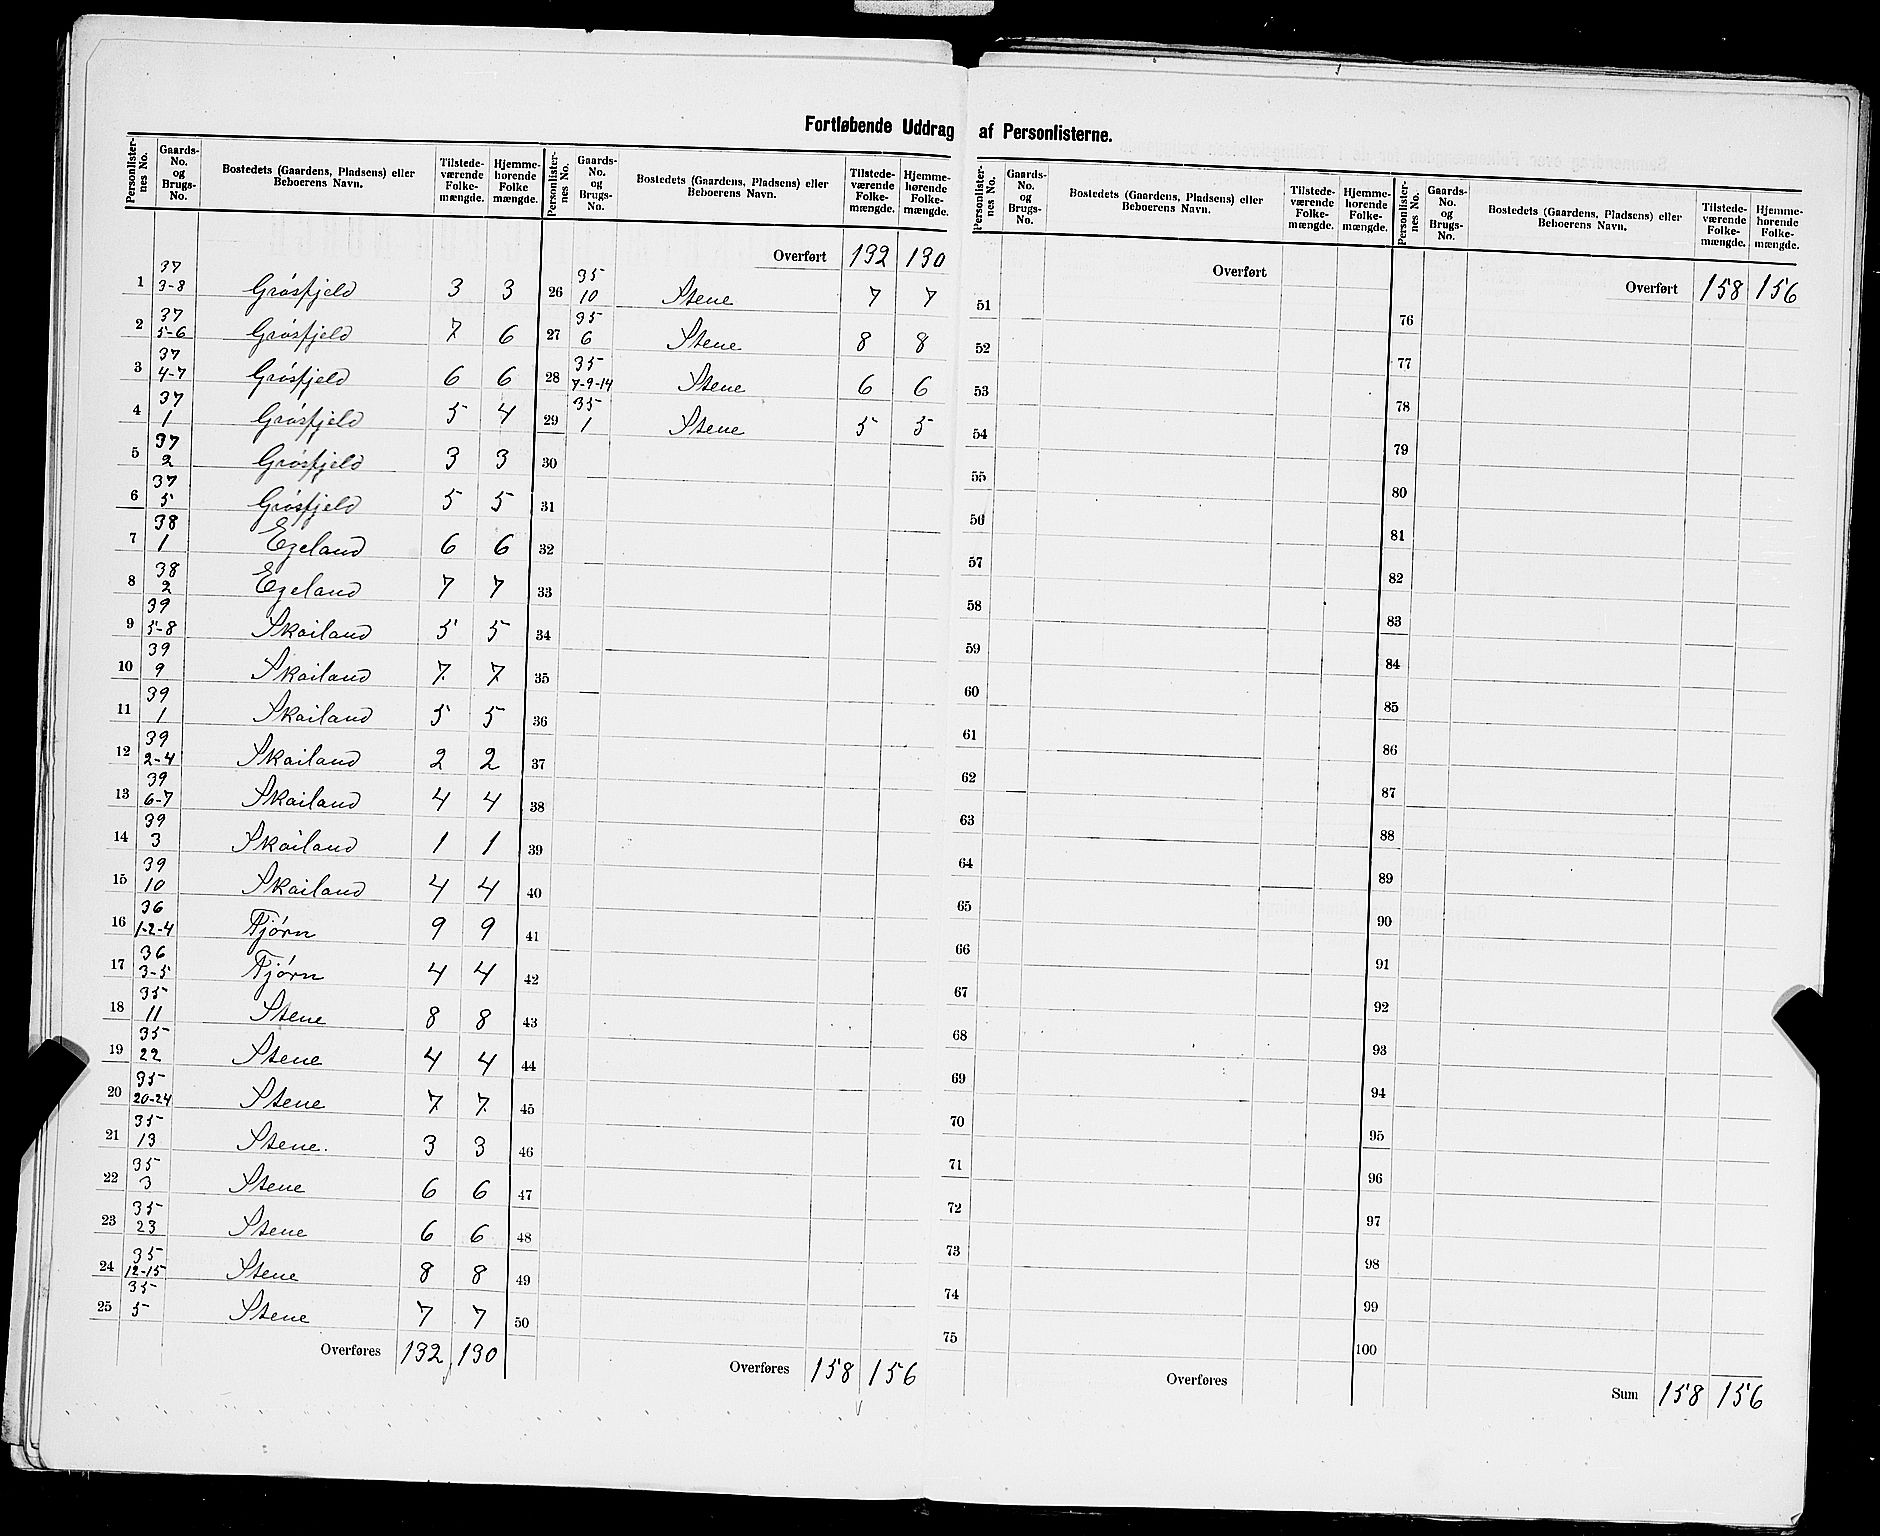 Fortløbende Uddrag af Personlisterne.
Personlister-nes No. | Gaards-No. og Brugs-No. | Bostedets (Gaardens, Pladsens) eller Beboerens Navn. | Tilstede-værende Folke-mængde. | Hjemme-hørende Folke mængde.
1 | 37 3-8 | Grøsfjeld | 3 | 3
2 | 37 5-6 | Grøsfjeld | 7 | 6
3 | 37 4-7 | Grøsfjeld | 6 | 6
4 | 37 1 | Grøsfjeld | 5 | 4
5 | 37 2 | Grøsfjeld | 3 | 3
6 | 37 5 | Grøsfjeld | 5 | 5
7 | 38 1 | Egeland | 6 | 6
8 | 38 2 | Egeland | 7 | 7
9 | 39 5-8 | Skailand | 5 | 5
10 | 39 9 | Skailand | 7. | 7.
11 | 39 1 | Skailand | 5 | 5
12 | 39 2-4 | Skailand | 2 | 2
13 | 39 6-7 | Skailand | 4 | 4
14 | 39 3 | Skailand | 1 | 1
15 | 39 10 | Skailand | 4 | 4
16 | 36 1-2-4 | Tjørn | 9 | 9
17 | 36 3-5 | Tjørn | 4 | 4
18 | 35 11 | Stene | 8 | 8
19 | 35 22 | Stene | 4 | 4
20 | 35 20-24 | Stene | 7. | 7.
21 | 35 13 | Stene. | 3 | 3
22 | 35 3 | Stene | 6 | 6
23 | 35 23 | Stene | 6 | 6
24 | 35 12-15 | Stene | 8 | 8
25 | 35 5 | Stene | 7 | 7
Overføres | 132 | 130
Personlister-nes No. | Gaards-No. og Brugs-No. | Bostedets (Gaardens, Pladsens) eller Beboerens Navn. | Tilstede-værende Folke-mængde. | Hjemme-hørende Folke-mængde.
Overført | 132 | 130
26 | 35 10 | Stene | 7 | 7
27 | 35 6 | Stene | 8 | 8
28 | 35 7-9-14 | Stene | 6 | 6
29 | 35 1 | Stene | 5 | 5
30
31
32
33
34
35
36
37
38
39
40
41
42
43
44
45
46
47
48
49
50
Overføres | 158 | 156
Personlister-nes No. | Gaards-No. og Brugs-No. | Bostedets (Gaardens, Pladsens) eller Beboerens Navn. | Tilstede-værende Folke-mængde. | Hjemme-hørende Folke-mængde.
Overført
51
52
53
54
55
56
57
58
59
60
61
62
63
64
65
66
67
68
69
70
71
72
73
74
75
Overføres
Personlister-nes No. | Gaards-No. og Brugs-No. | Bostedets (Gaardens, Pladsens) eller Beboerens Navn. | Tilstede-værende Folke-mængde. | Hjemme-hørende Folke-mængde.
Overført | 158 | 156
76
77
78
79
80
81
82
83
84
85
86
87
88
89
90
91
92
93
94
95
96
97
98
99
100
Sum | 158 | 156